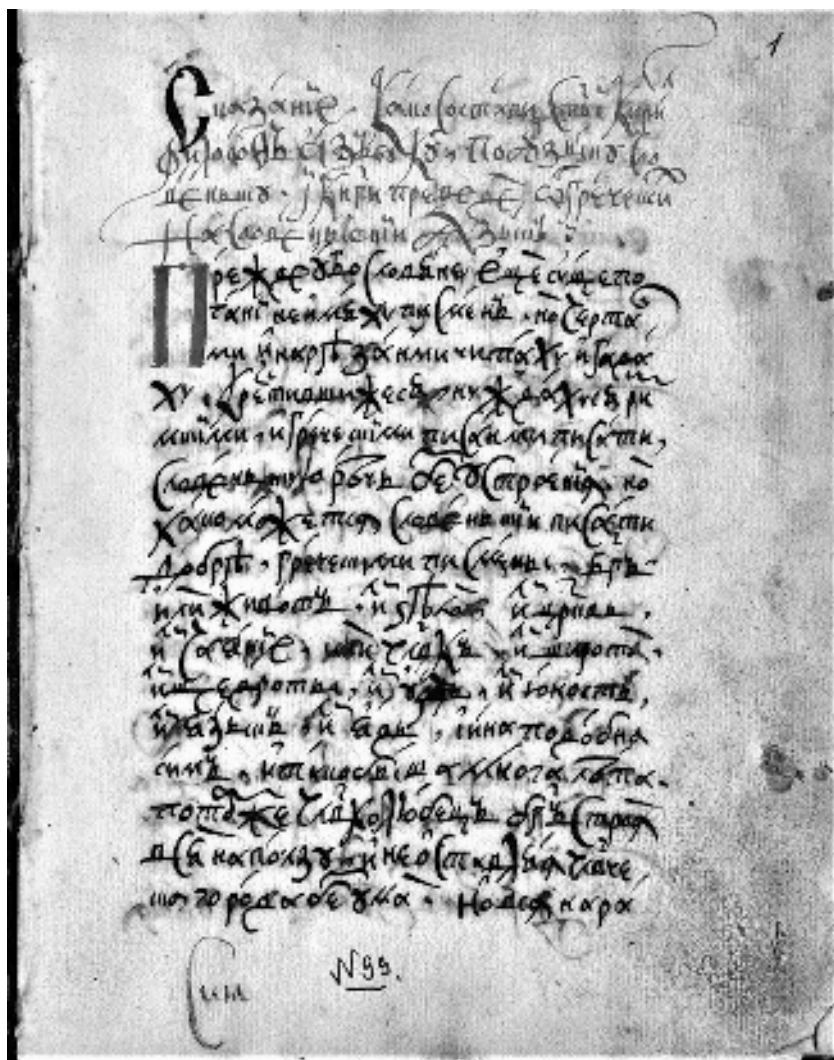 Сказанїе, како состави с҃тыи Кири
філосоѳъ азъбꙋкꙋ по ѧзыкꙋ сло
веньскꙋ, и книги преведе ѿ греческих
на словеньскїи ѧзыкъ
Прежде ꙋбо словѧне еще сꙋще по
гани не имѣхꙋ писменъ, но черта
ми и нарѣзанми читахꙋ и гада
хꙋ, крестивши же сѧ нꙋждахꙋсѧ ри
мскими, и греческими писмены писати,
словеньскꙋ рѣчь без ꙋстроенїѧ, но
како может сѧ словеньски писати
добрѣ, греческими писмены, б҃гъ
или животъ, или ѕѣло, или црковь,
или чаѧнїе, или ч҃лвкъ, или широта,
или щедроты, или, или юность,
или ѧзыкъ, или ѧдъ, и ина подобна
симъ, и тако бѣша многа лѣта.
потом же ч҃лвколюбецъ б҃гъ строѧ
всѧ на ползꙋ и не ѡставлѧѧ ч҃лвче
ска рода без ꙋма, но всѧ к ра
1
N 99.